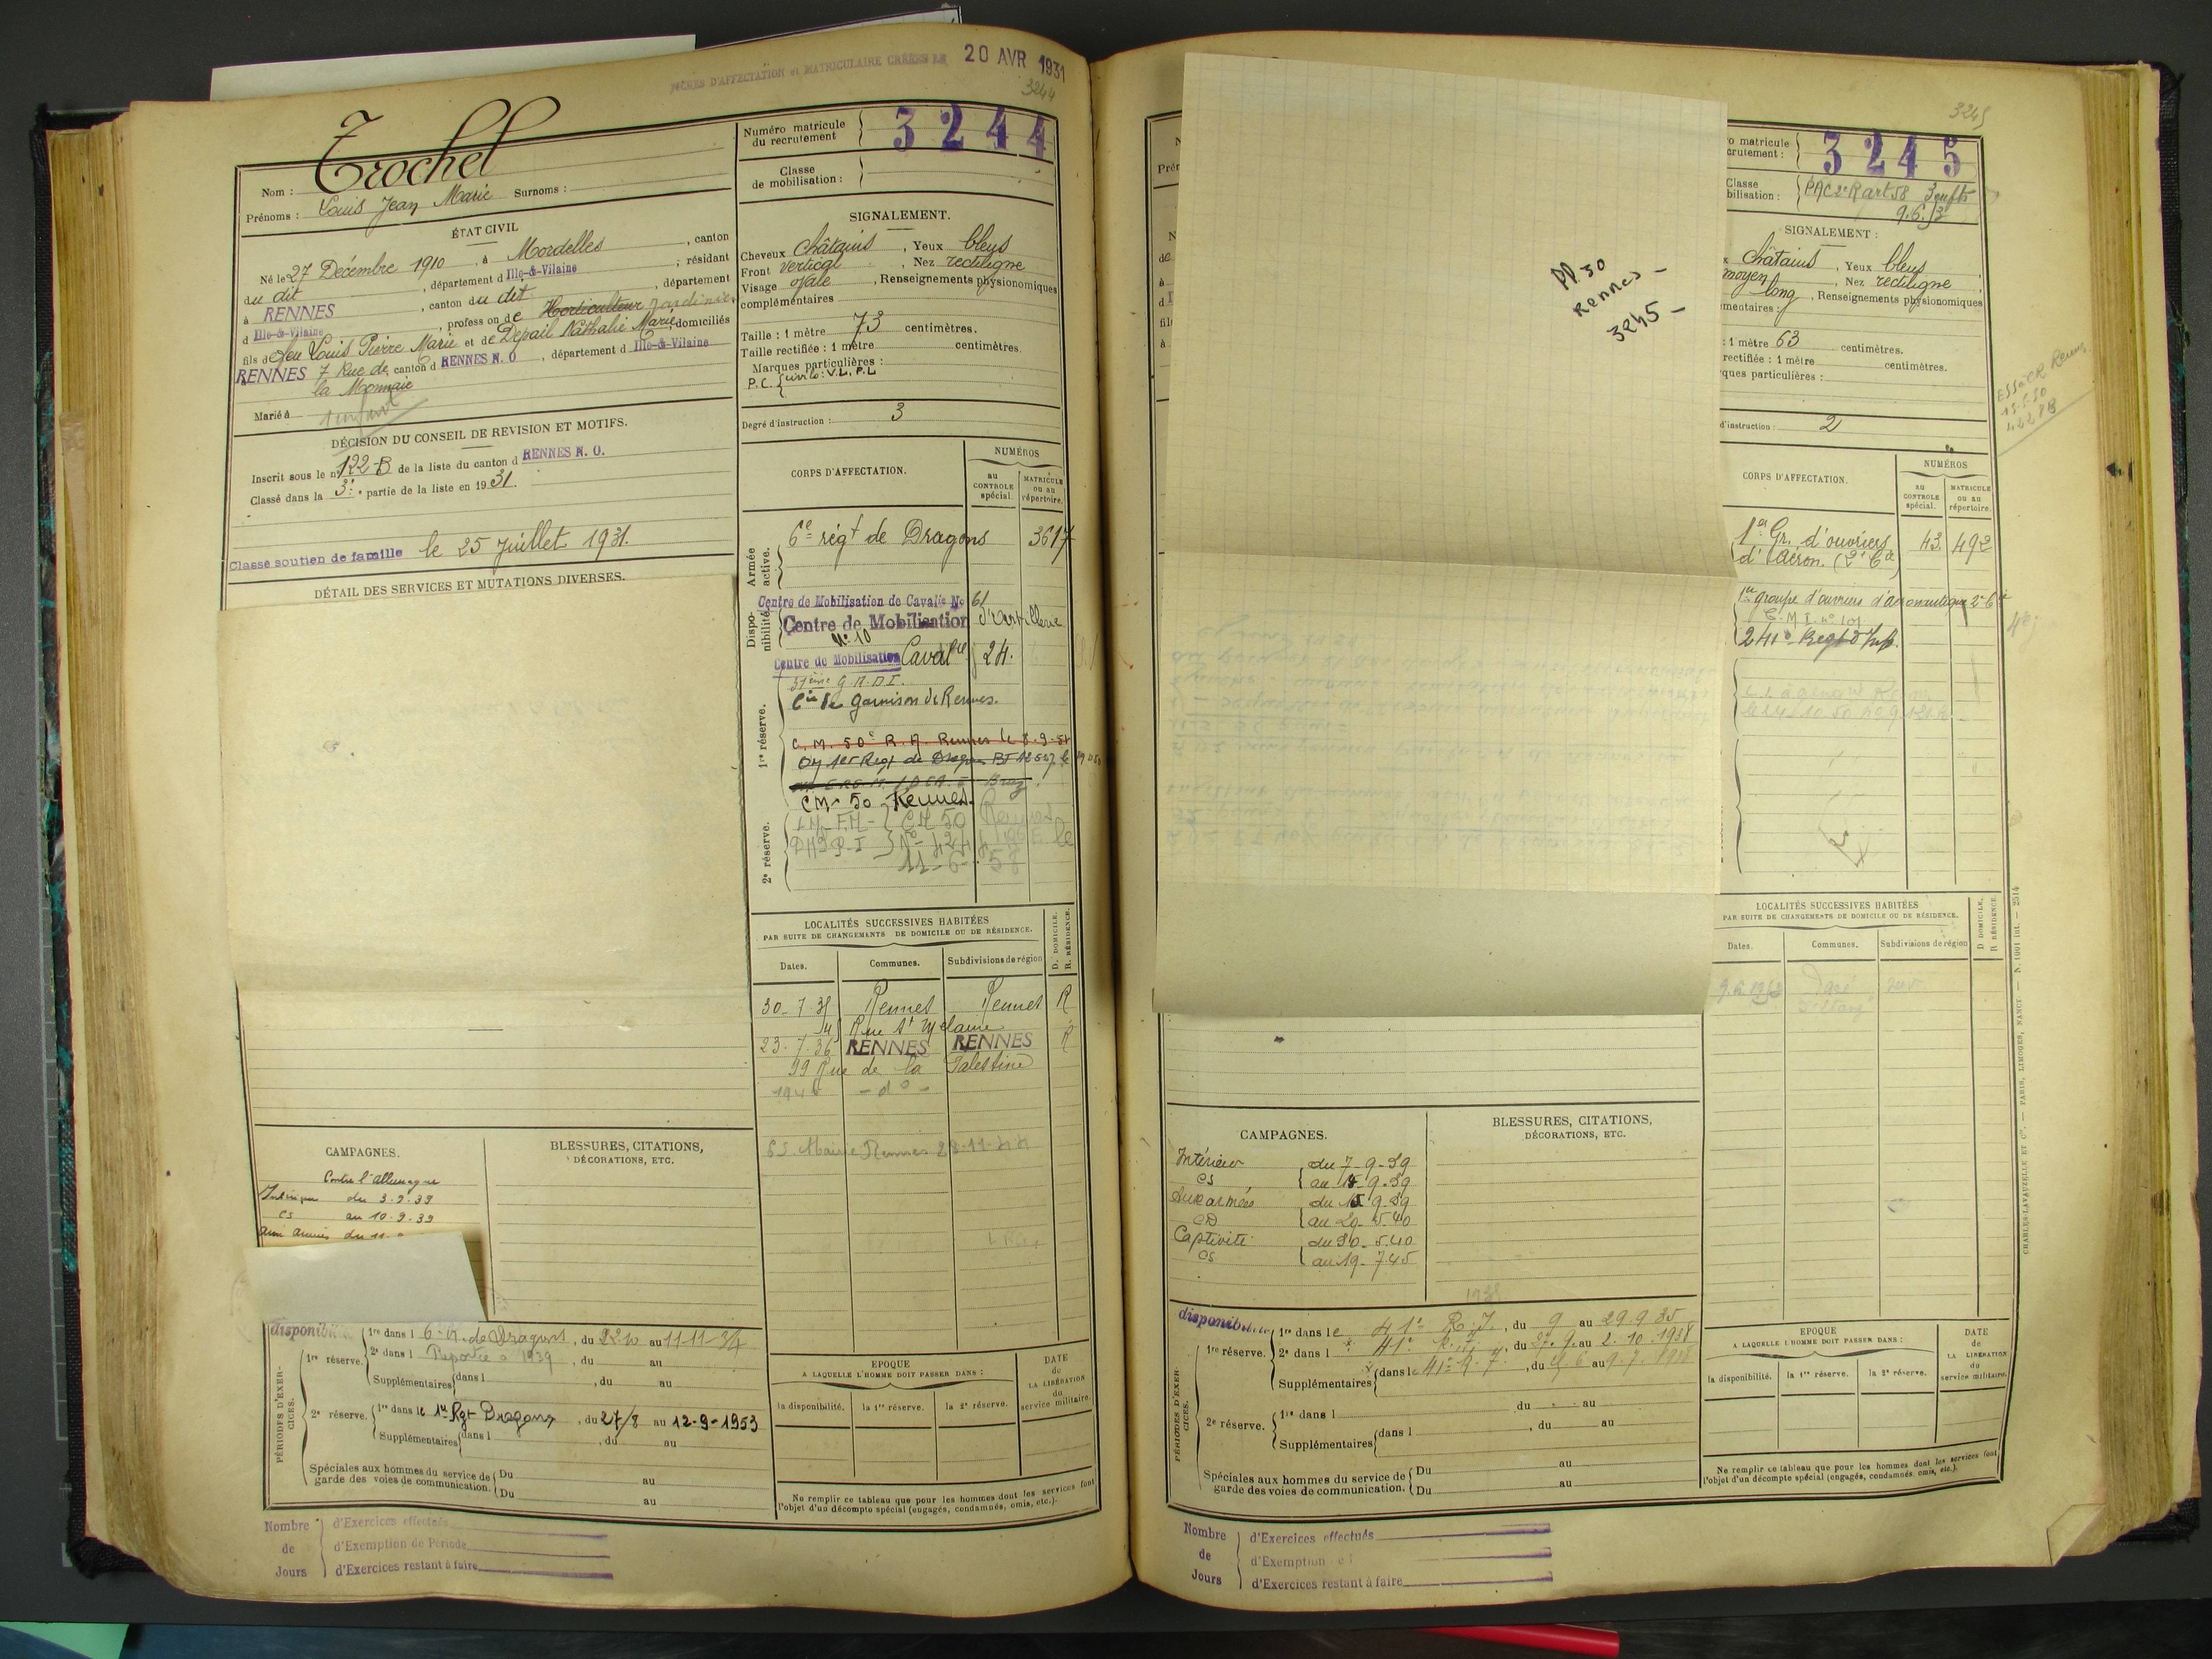 FICHES D'AFFECTATION et MATRICULAIRE CRÉÉES LE 20 AVR 1931
3244
Nom : Trochel
Prénoms : Louis Jean Marie Surnoms :
Numéro matricule du recrutement 3244
Classe de mobilisation :
ÉTAT CIVIL
Né le 27 Décembre 1910, à Mordelles, canton
du dit, département d Ille-&-Vilaine; résidant
à RENNES, canton du dit, département
d Ille-&-Vilaine, profession de Horticulteur Jardinier
fils de feu Louis Pierre Marie et de Depail Nathalie Marie, domiciliés
RENNES 7 Rue de la Monnaie, canton d RENNES N. O, département d Ille-&-Vilaine
Marié à
1 enfant
DÉCISION DU CONSEIL DE REVISION ET MOTIFS.
Inscrit sous le n° 122 B de la liste du canton d RENNES N. O.
Classé dans la 3e partie de la liste en 1931.
Classé soutien de famille le 25 Juillet 1931.
DÉTAIL DES SERVICES ET MUTATIONS DIVERSES.
SIGNALEMENT.
Cheveux châtains, Yeux bleus
Front vertical, Nez rectiligne
Visage ovale, Renseignements physionomiques
complémentaires
Taille : 1 mètre 73 centimètres.
Taille rectifiée : 1 mètre centimètres.
Marques particulières :
P.C. civils : V.L, P.L
Degré d'instruction : 3
CORPS D'AFFECTATION.
NUMÉROS
au CONTROLE spécial.
MATRICULE ou au répertoire.
Armée active.
6e régt de Dragons 3617
Disponibilité
Centre de Mobilisation de Cavalie No 61
Centre de Mobilisation d'artillerie
N° 10
Centre de Mobilisation Cavalrie 24.
1re réserve.
31ème G.R.D.I.
Cie de Garnison de Rennes.
C. M. 50e R. A. Rennes le 8-9-51
1er Regt de Dragons
CM 50 Rennes.
2e réserve.
CM 50 Rennes
11-6-58
LOCALITÉS SUCCESSIVES HABITÉES
PAR SUITE DE CHANGEMENTS DE DOMICILE OU DE RÉSIDENCE.
Dates. Communes. Subdivisions de région
D. DOMICILE.
R. RÉSIDENCE.
30-7-35 Rennes Rennes R
Rue St Melaine
23.7.36 RENNES RENNES R
99 Rue de la Palestine
- do -
Mairie Rennes 28-11-44
CAMPAGNES.
Contre l'allemagne
Intérieur du 3.9.39
CS au 10.9.39
aux armées du 11.
BLESSURES, CITATIONS,
DÉCORATIONS, ETC.
PÉRIODES D'EXERCICES.
disponibilité
1re réserve.
1re dans l 6e R. de Dragons, du 22.10 au 11-11-34
2e dans l Reportée à 1939, du au
Supplémentaires dans l , du au
2e réserve.
1re dans le 1er Rgt Dragons, du 27/8 au 12-9-1953
Supplémentaires dans l , du au
Spéciales aux hommes du service de garde des voies de communication.
Du au
Du au
EPOQUE
A LAQUELLE L'HOMME DOIT PASSER DANS :
la disponibilité. la 1re réserve. la 2e réserve.
DATE de LA LIBÉRATION du service militaire.
Ne remplir ce tableau que pour les hommes dont les services font
l'objet d'un décompte spécial (engagés, condamnés, omis, etc.).
Nombre de Jours
d'Exercices effectués
d'Exemption de Période
d'Exercices restant à faire
PP. 30
Rennes -
3245 -
3245
o matricule
crutement : 3245
Classe
bilisation :
9.6.
SIGNALEMENT :
châtains, Yeux bleus
moyen, Nez rectiligne
long, Renseignements physionomiques
mentaires :
: 1 mètre 63 centimètres.
rectifiée : 1 mètre centimètres.
ques particulières :
d'instruction : 2
CORPS D'AFFECTATION.
NUMÉROS
au CONTROLE spécial.
MATRICULE ou au répertoire.
1er Gr. d'ouvriers 43 492
d'Aéron. (2e Cie)
1er groupe d'ouvriers d'aéronautique 2e Cie
C.M.I. n° 101
241e Regt d'Inf.
LOCALITÉS SUCCESSIVES HABITÉES
PAR SUITE DE CHANGEMENTS DE DOMICILE OU DE RÉSIDENCE.
Dates. Communes. Subdivisions de région
D DOMICILE.
R RÉSIDENCE.
CAMPAGNES.
Intérieur du 7-9-39
CS au 14-9-39
Aux armées du 15 9-39
CD au 29-5-40
Captivité du 30-5.40
CS au 19-7.45
BLESSURES, CITATIONS,
DÉCORATIONS, ETC.
1938
PÉRIODES D'EXERCICES.
disponibilité
1re réserve.
1re dans le 41e R.I., du 9 au 29.9.35
2e dans l 41e R.I., du 27.9. au 2.10.1938
Supplémentaires dans le 41e R.I., du au 9.7.1938
2e réserve.
1re dans l du au
Supplémentaires dans l , du au
Spéciales aux hommes du service de garde des voies de communication.
Du au
Du au
EPOQUE
A LAQUELLE L'HOMME DOIT PASSER DANS :
la disponibilité. la 1re réserve. la 2e réserve.
DATE de LA LIBÉRATION du service militaire.
Ne remplir ce tableau que pour les hommes dont les services font
l'objet d'un décompte spécial (engagés, condamnés, omis, etc.).
Nombre de Jours
d'Exercices effectués
d'Exemption
d'Exercices restant à faire
CHARLES-LAVAUZELLE ET Cie. — PARIS, LIMOGES, NANCY.